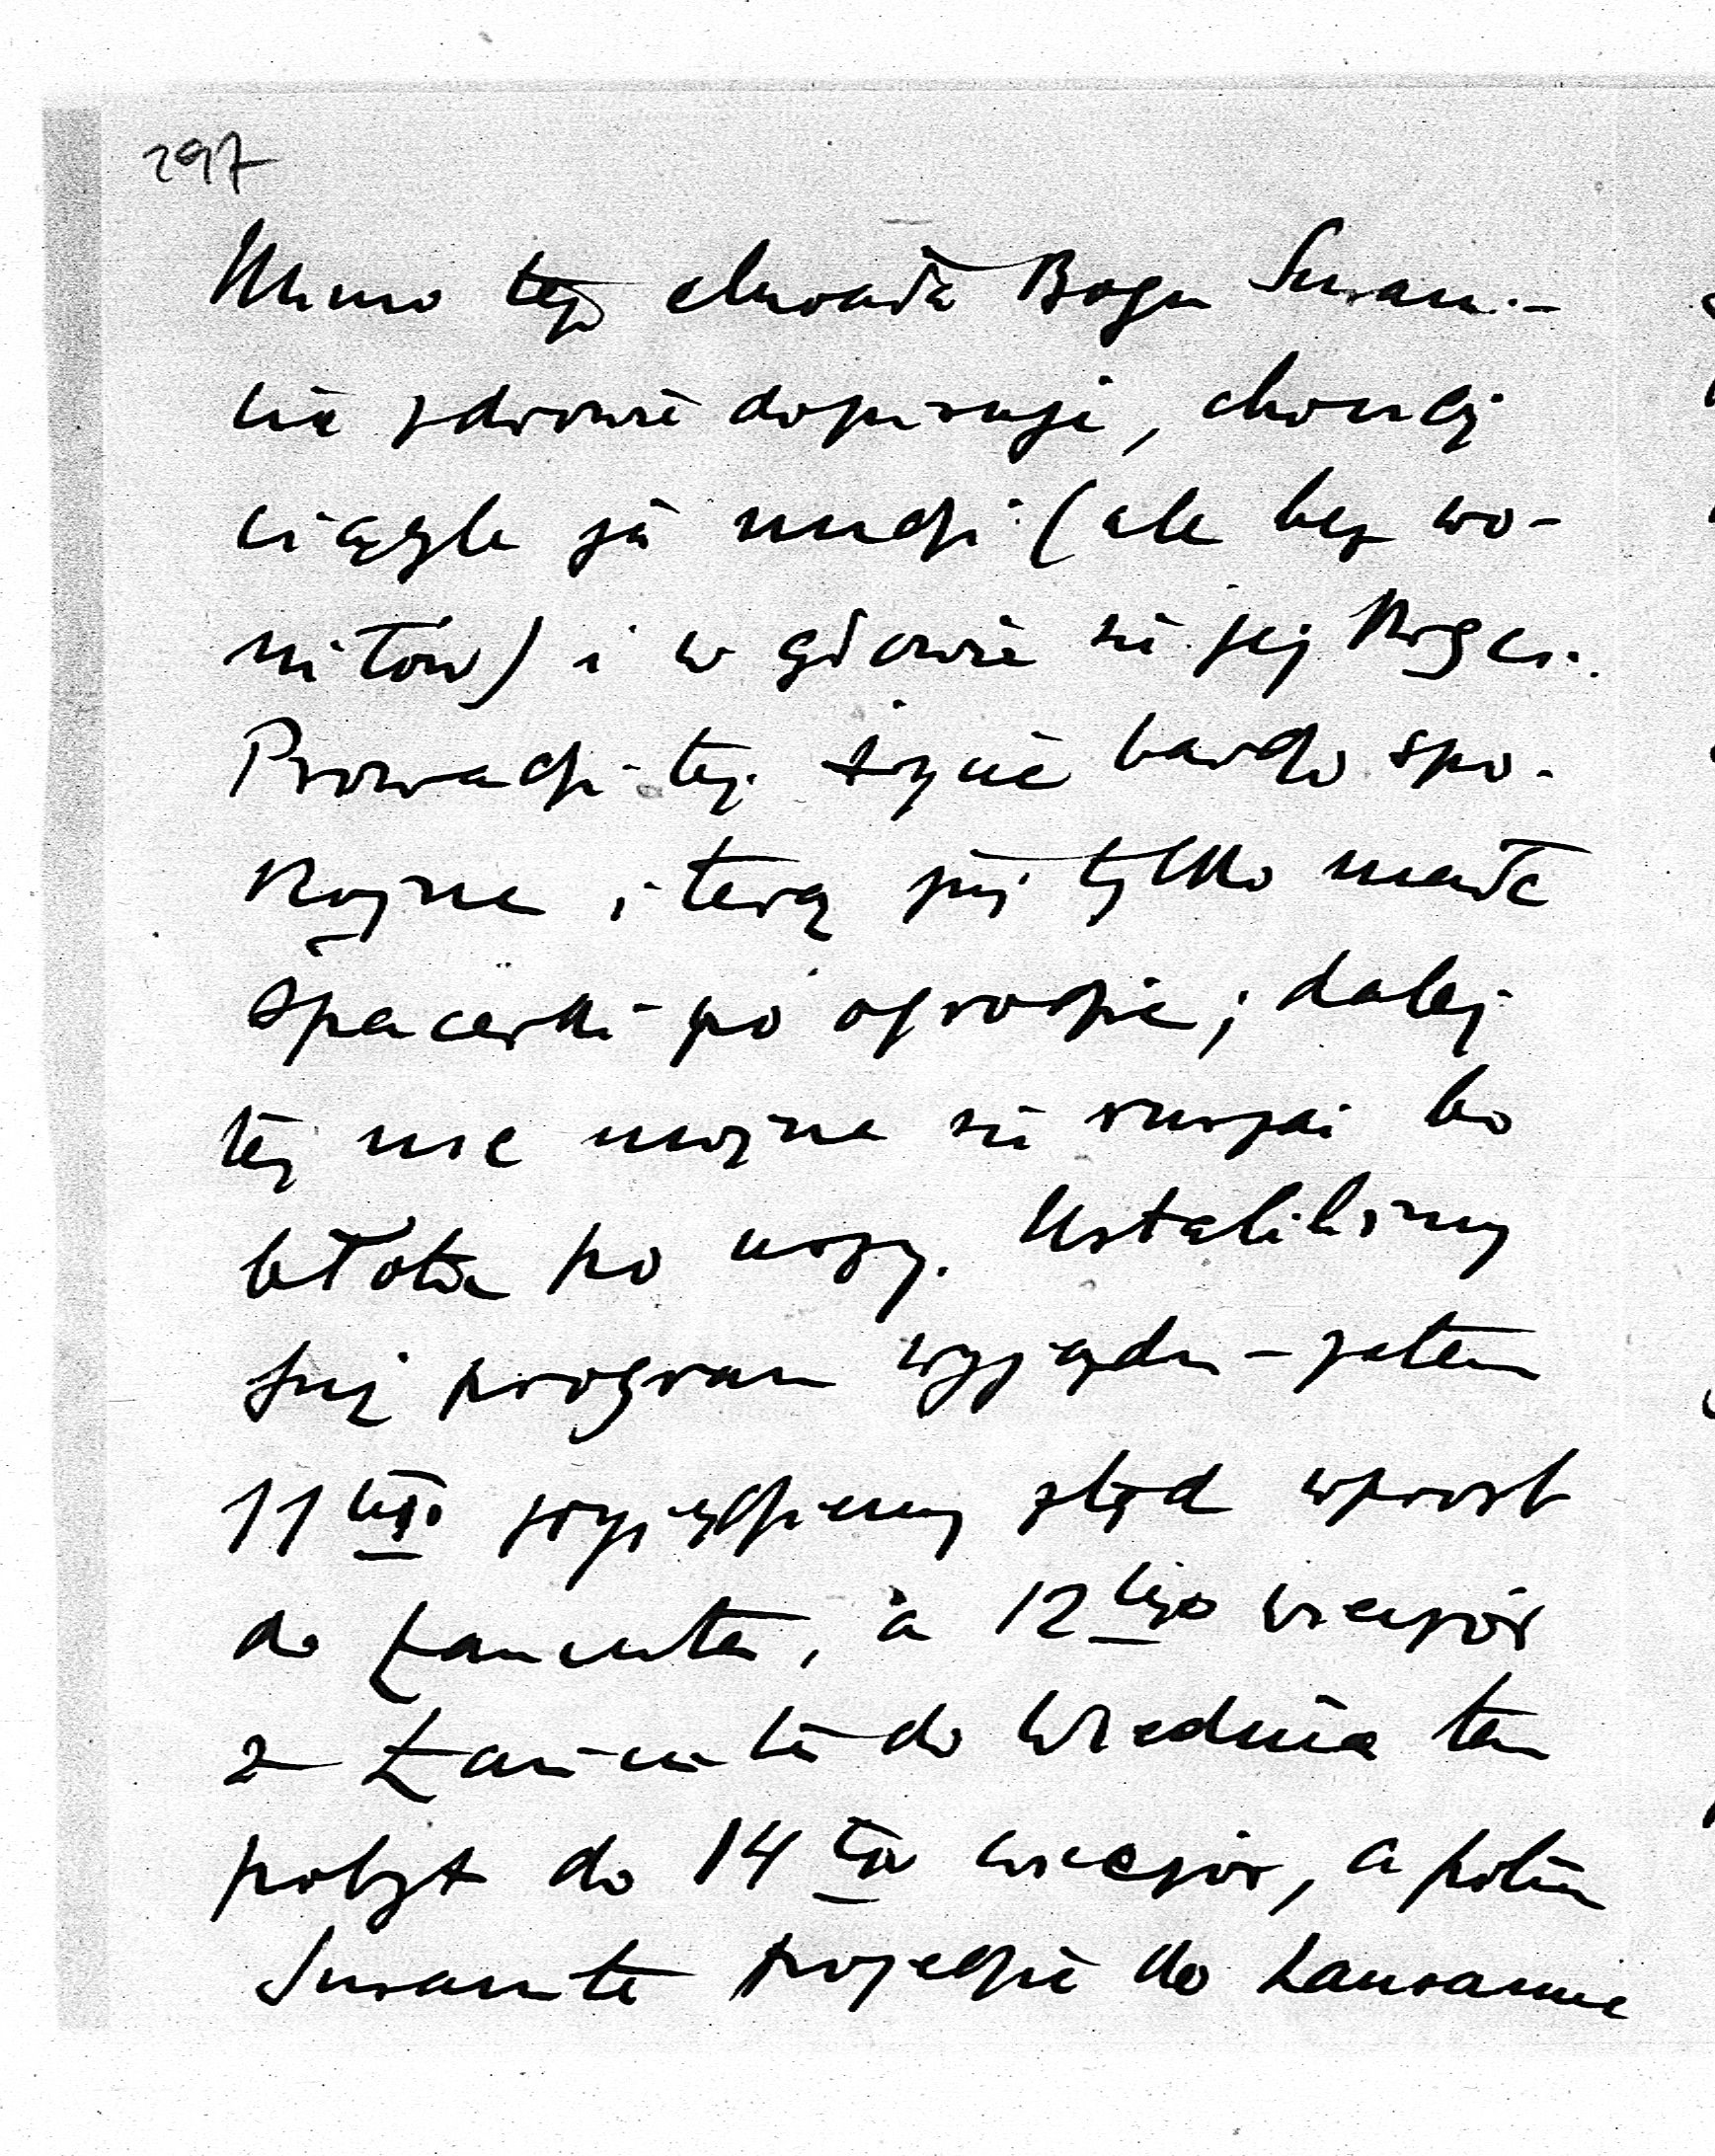 297
Mimo tego chwała Bogu Suzan-
cie zdrowie dopisuje, chociaż
ciągle ją mdli (ale bez wo-
mitów) i w głowie się jej kręci.
Prowadzi też życie bardzo spo-
kojne i teraz już tylko małe
spacerki po ogrodzie; dalej
też nie można się ruszać bo
błota po uszy. Ustaliliśmy
już program wyjazdu – zatem
11tego wyjeżdżamy stąd wprost
do Łańcuta, a 12tego wieczór
z Łańcuta do Wiednia tam
pobyt do 14to wieczór, a potem
Susanta pojedzie do Lausanne